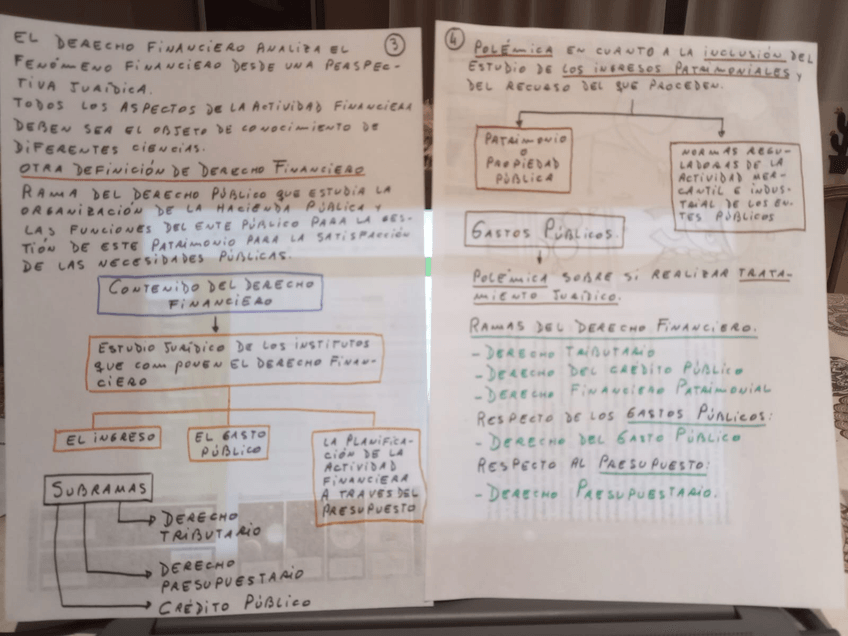 3
EL DERECHO FINANCIERO ANALIZA EL
FENÓMENO FINANCIERO DESDE UNA PERSPEC-
TIVA JURÍDICA.
TODOS LOS ASPECTOS DE LA ACTIVIDAD FINANCIERA
DEBEN SER EL OBJETO DE CONOCIMIENTO DE
DIFERENTES CIENCIAS.
OTRA DEFINICIÓN DE DERECHO FINANCIERO
RAMA DEL DERECHO PÚBLICO QUE ESTUDIA LA
ORGANIZACIÓN DE LA HACIENDA PÚBLICA Y
LAS FUNCIONES DEL ENTE PÚBLICO PARA LA GES-
TIÓN DE ESTE PATRIMONIO PARA LA SATISFACCIÓN
DE LAS NECESIDADES PÚBLICAS.
CONTENIDO DEL DERECHO
FINANCIERO
ESTUDIO JURÍDICO DE LOS INSTITUTOS
QUE COMPONEN EL DERECHO FINAN-
CIERO
EL INGRESO
EL GASTO
PÚBLICO
LA PLANIFICA-
CIÓN DE LA
ACTIVIDAD
FINANCIERA
A TRAVES DEL
PRESUPUESTO
SUBRAMAS
DERECHO
TRIBUTARIO
DERECHO
PRESUPUESTARIO
CRÉDITO PÚBLICO
4
POLÉMICA EN CUANTO A LA INCLUSIÓN DEL
ESTUDIO DE LOS INGRESOS PATRIMONIALES Y
DEL RECURSO DEL QUE PROCEDEN.
PATRIMONIO
O
PROPIEDAD
PÚBLICA
NORMAS REGU-
LADORAS DE LA
ACTIVIDAD MER-
CANTIL E INDUS-
TRIAL DE LOS EN-
TES PÚBLICOS
GASTOS PÚBLICOS.
POLÉMICA SOBRE SI REALIZAR TRATA-
MIENTO JURÍDICO.
RAMAS DEL DERECHO FINANCIERO.
- DERECHO TRIBUTARIO
- DERECHO DEL CRÉDITO PÚBLICO
- DERECHO FINANCIERO PATRIMONIAL
RESPECTO DE LOS GASTOS PÚBLICOS:
- DERECHO DEL GASTO PÚBLICO
RESPECTO AL PRESUPUESTO:
- DERECHO PRESUPUESTARIO.